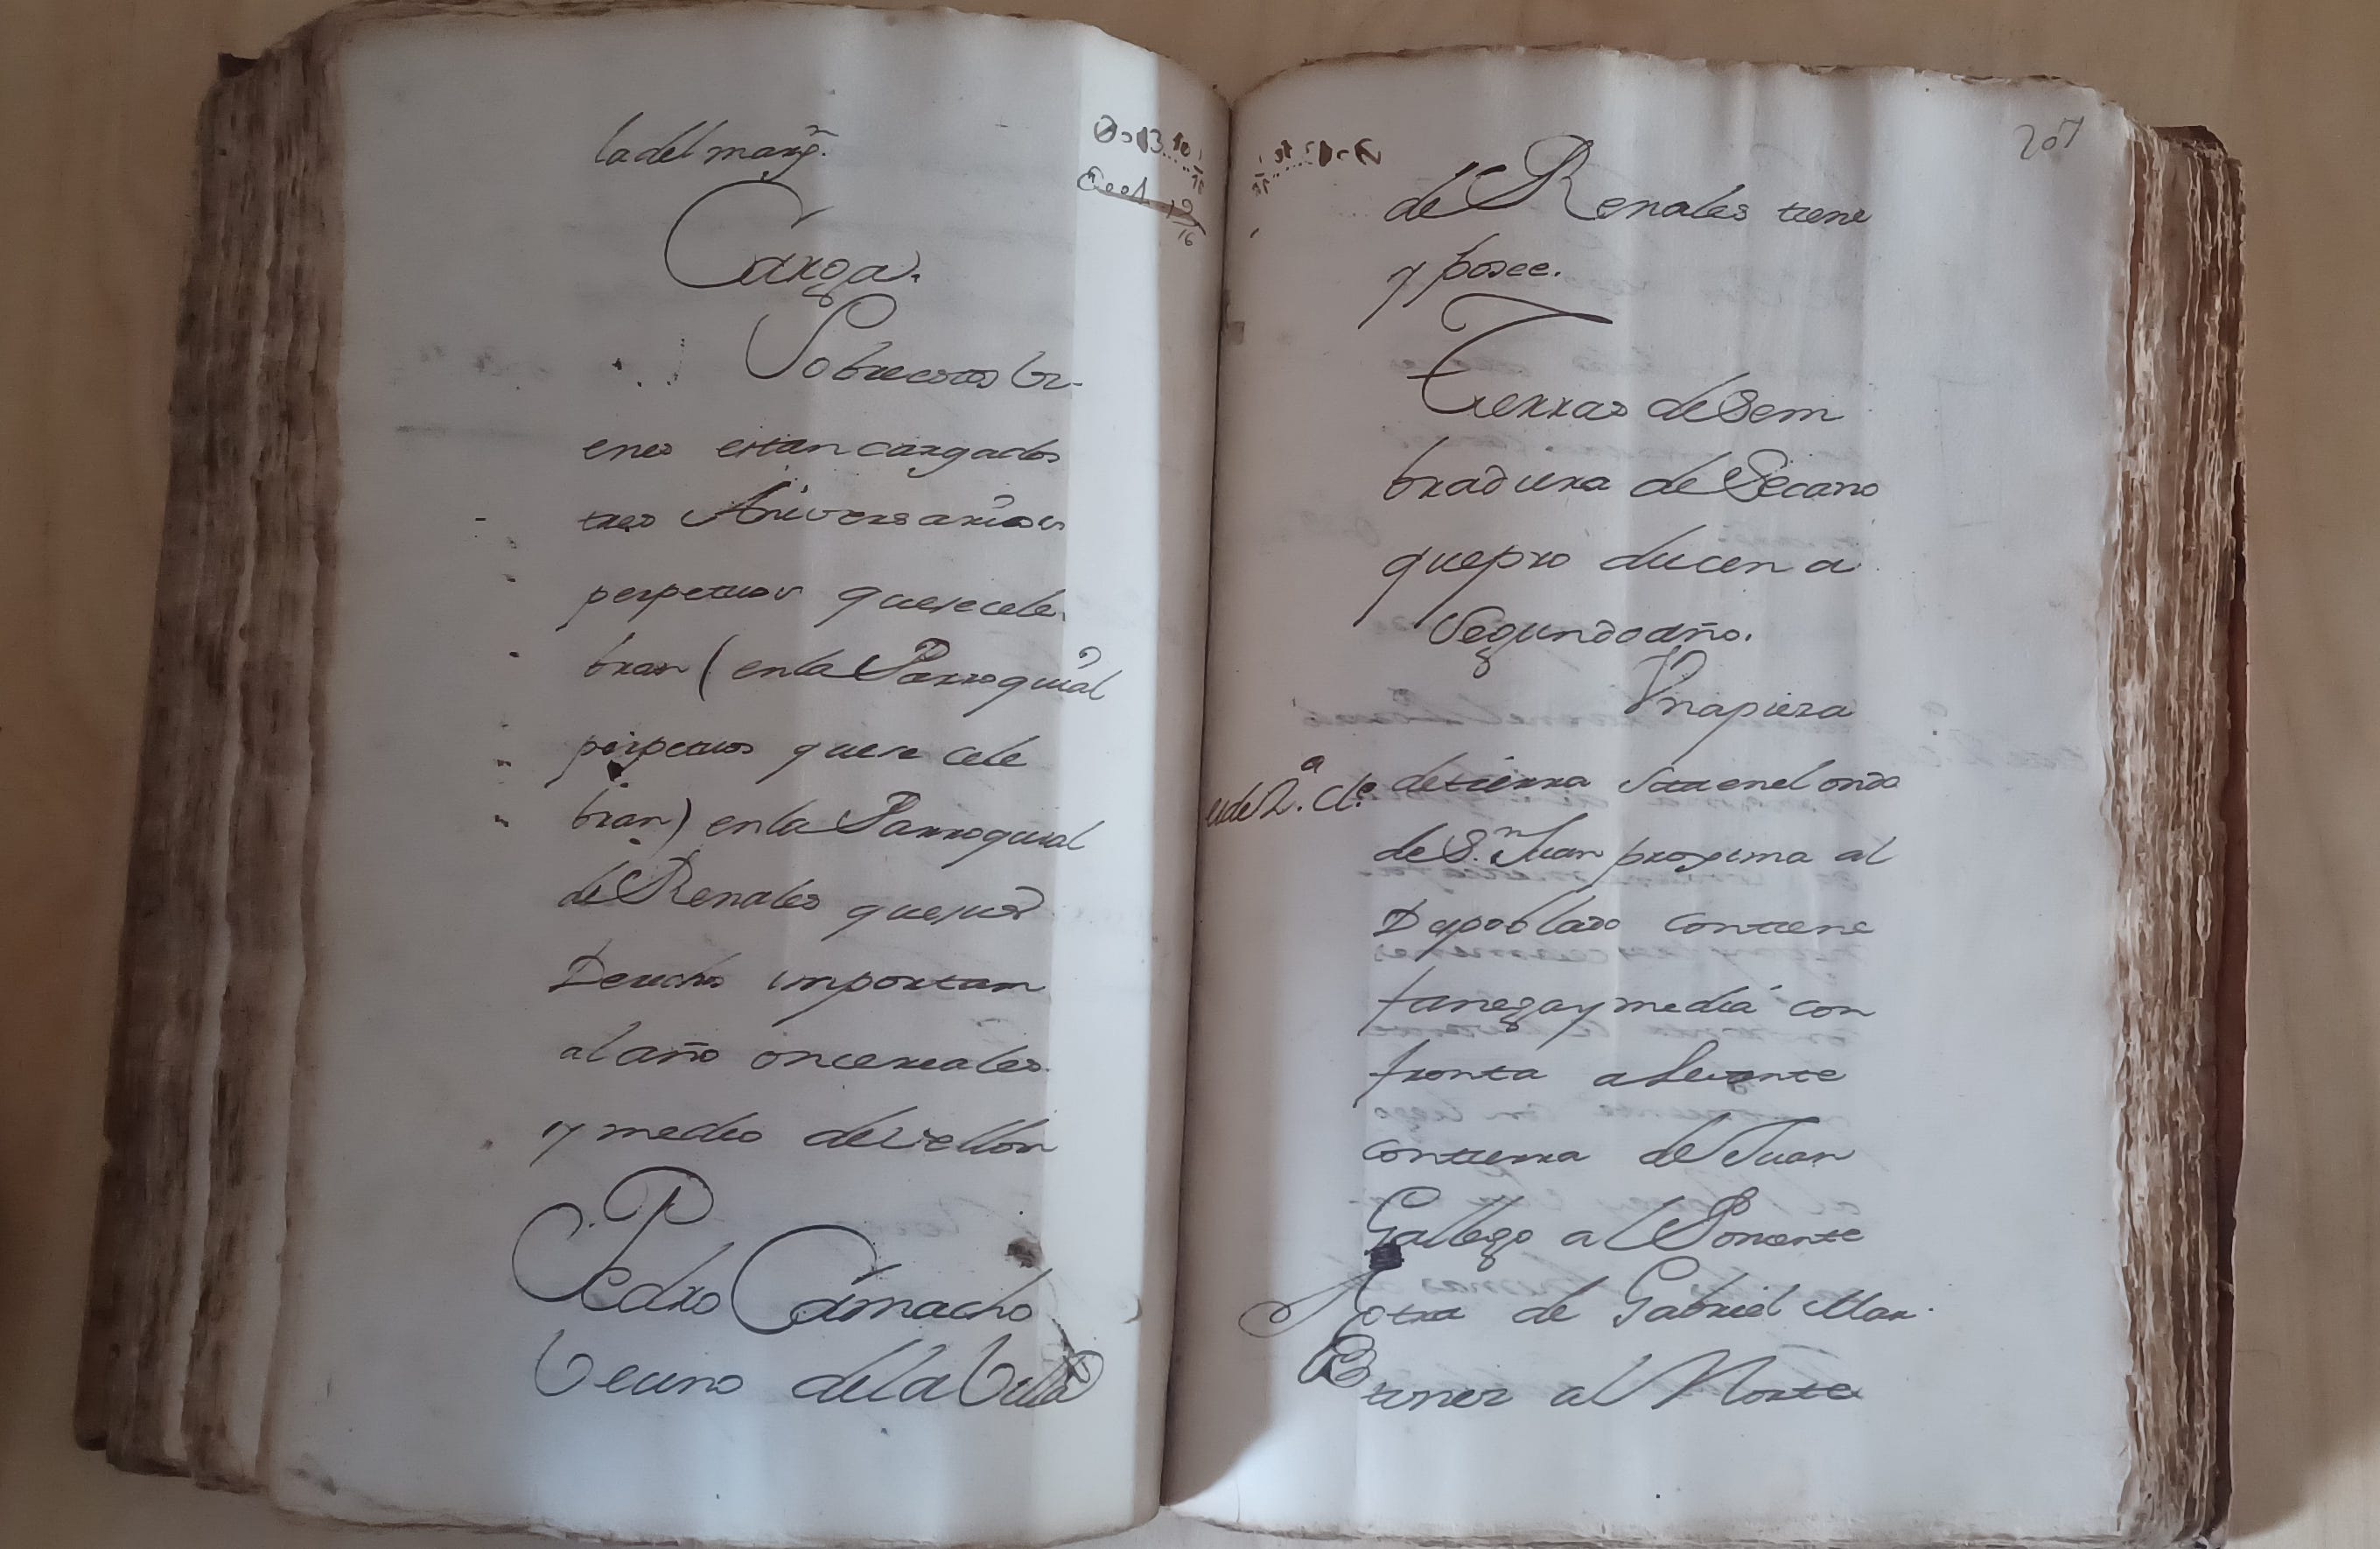 la del marg.n
Carga.
Sobre estos bi-
enes estan cargados
tres Aniversarios
perpetuos que se cele-
bran (en la Parroquial
perpetuos que se cele
bran) en la Parroquial
de Renales que sus
Derechos importan
al año once reales
y medio de vellon
Pedro Camacho
Vecino de la Villa
207
de Renales tiene
y posee.
Tierras de Sem
bradura de Secano
que pro ducen a
Segundo año.
Una pieza
es de 2.a cl.e
de tierra sita en el ondo
de S.n Juan proxima al
Despoblado contiene
fanega y media con
fronta a Levante
con tierra de Juan
Gallego al Poniente
otra de Gabriel Mar-
tinez al Norte